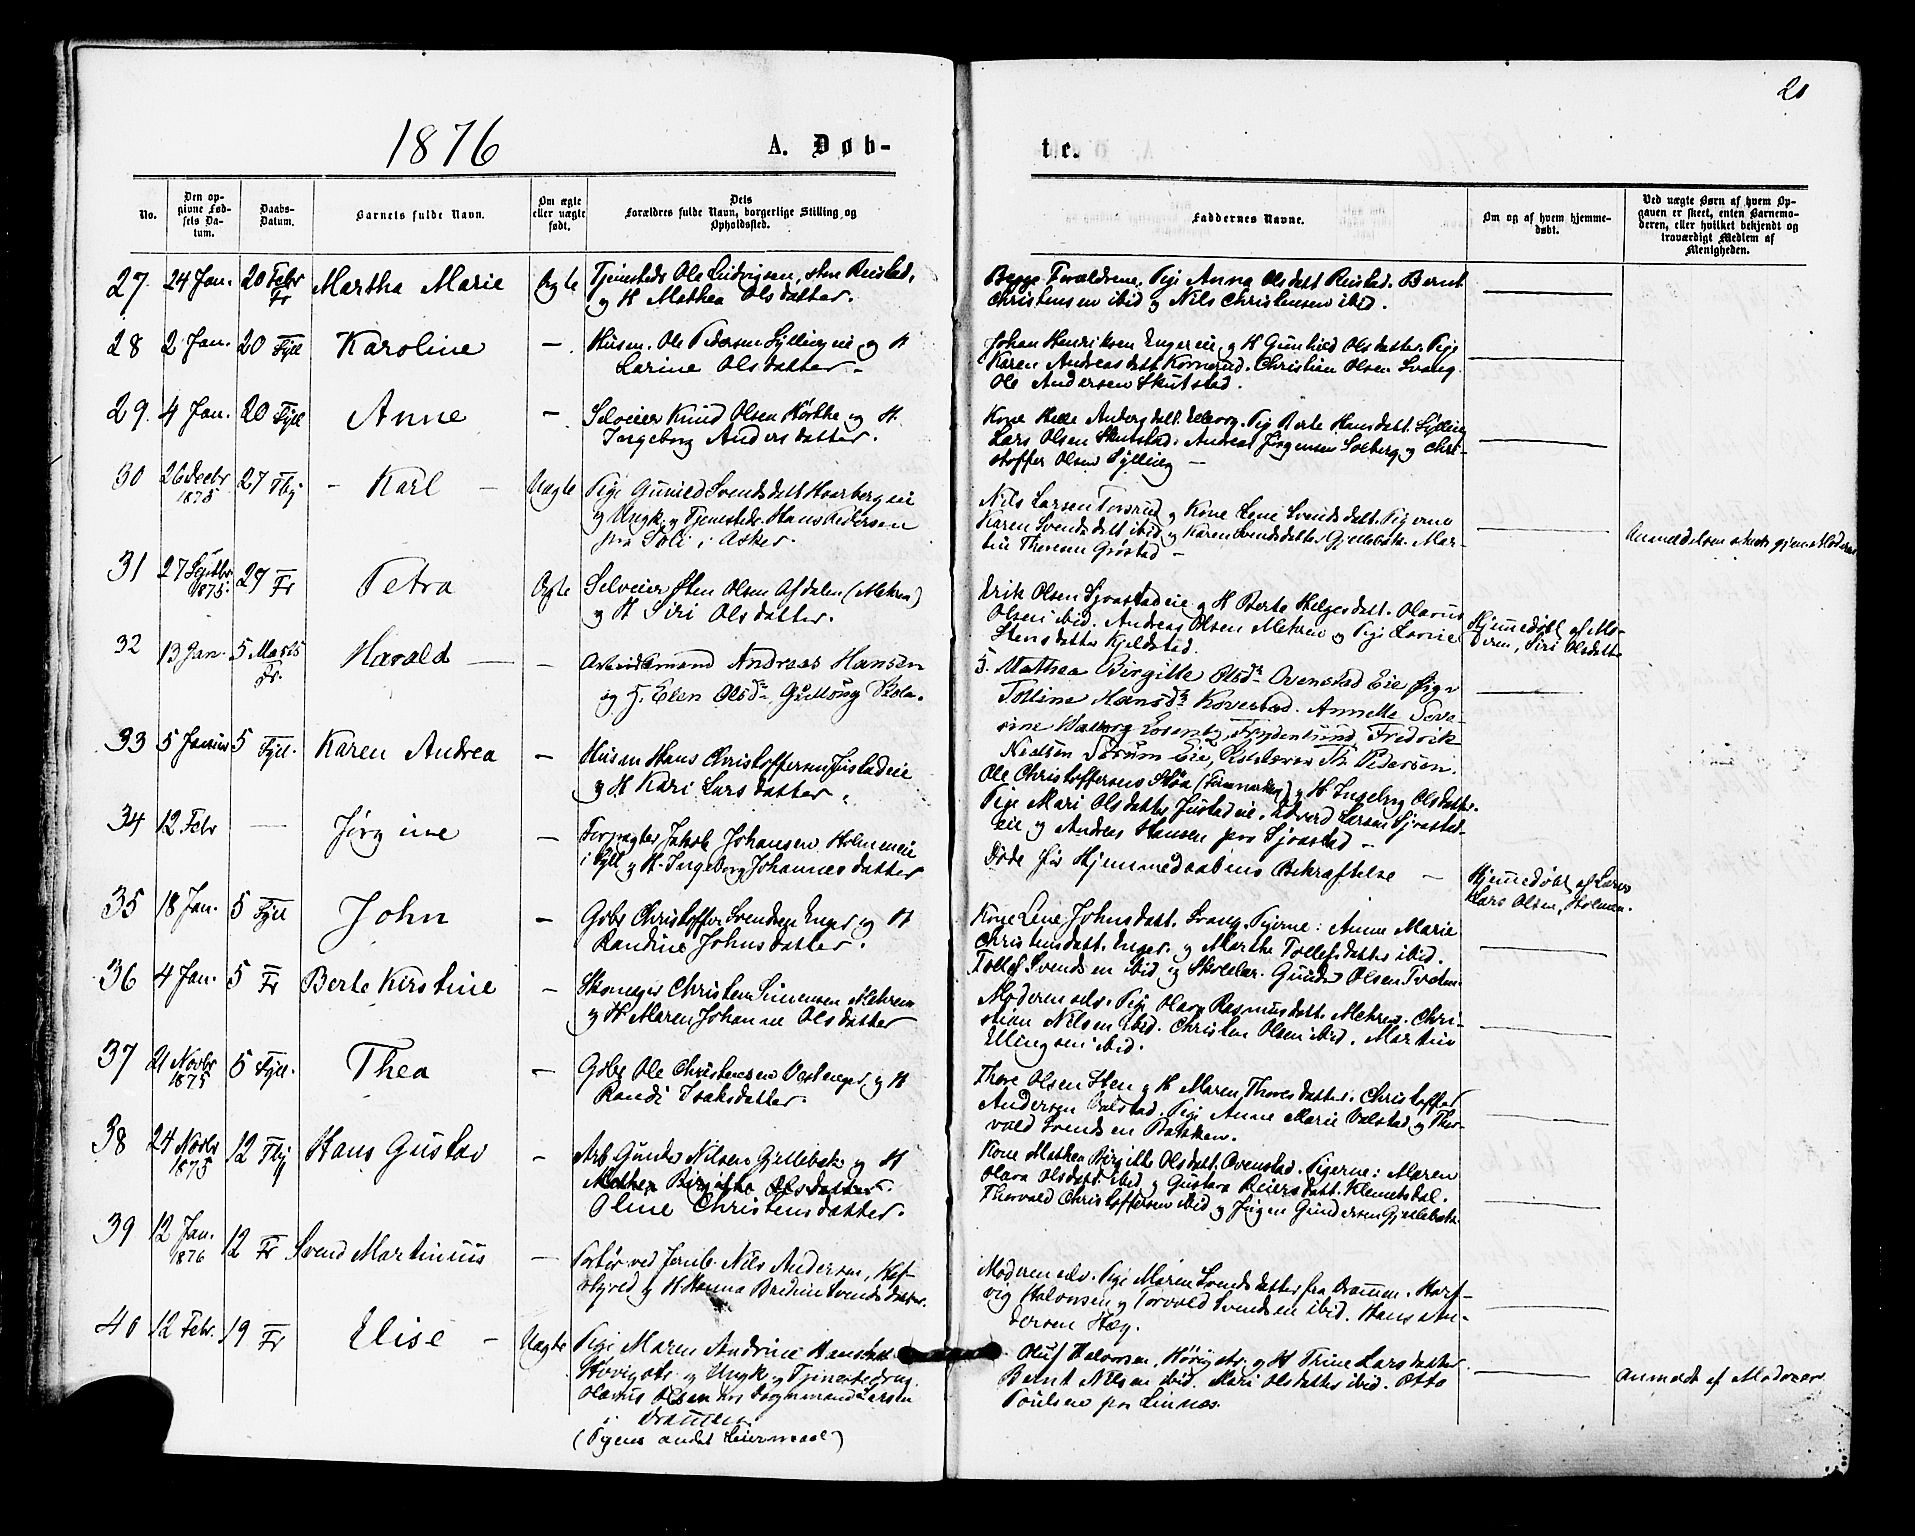 1876
A. Døb-
te.
20
No.
Den op-
givne Fød-
sels Da-
tum.
Daabs-
Datum.
Barnets fulde Navn.
Om ægte
eller uægte
født.
Dets
Forældres fulde Navn, borgerlige Stilling og
Opholdssted.
Faddernes Navne.
Om og af hvem hjemme-
døbt.
Ved uægte Børn af hvem Op-
gaven er skeet, enten Barnemo-
deren, eller hvilket bekjendt og
troværdigt Medlem af
Menigheden.
27. 24 Jan. 20 Febr Fr Martha Marie Ægte
Ole Ludvigsen
og H Mathea Olsdatter.
Begge Forældrene. Pige Anna Olsdatt Reistad. Bernt
Christensen ibid og Nils Christensen ibid.
28 2 Jan. 20 Fjell Karoline —
Husm. Ole Pedersen Syllingeie og H
Larine Olsdatter
Johan Henriksen Engereie og H Gunhild Olsdatter. Pige
Karen Andreasdatt. Christian Olsen Svang.
Ole Andersen Skutstad.
29. 4 Jan. 20 Fjell Anne —
Selveier Knud Olsen og H.
Ingeborg Andersdatter.
Kone Helle Andersdatt. Pig Berte Hansdatt. Sylling
Lars Olsen Skutstad. Andreas Jørgensen Solberg og Chri-
stoffer Olsen Sylling —
30 26 Decbr 1875 27 Tbj — Karl — Uægte
Pige Gunild Svendsdatt
og Ungk. og Tjenestedr. Hans Pedersen
fra Soli i Asker.
Nils Larsen og Kone Lene Svendsdatt. Pigerne
Karen Svendsdatt ibid og Karen Svendsdatter Gjellebæk. Mar-
tin Thoresen Grøstad —
Anmeldelsen skede gjen. Moderen
31 27 Septbr 1875. 27 Fr Petra Ægte
Selveier Sten Olsen Afdalen (Mehren)
og H Siri Olsdatter.
Erik Olsen Sjaastadeie og H Berte Helgesdatt. Olaus
Olsen ibid. Andreas Olsen Mehren og Pige Karine
Stensdatter Kjeldstad.
Hjemmedøbt af Mo-
deren, Siri Olsdatter
32 13 Jan. 5 Marts Fr. Harald — —
Arbeidsmand Andreas Hansen
og H. Elen Olsdr
5. Mathea Birgitte Olsdr Ovenstad Eie Pige
Tolline Hansdr Annette Seve-
rine Frydenlund. Fredrik
Nielsen Sørum Eie, Th Pedersen.
33 5 Januar 5 Fjell. Karen Andrea —
Husm Hans Christoffersen Justadeie
og H Kari Larsdatter.
Ole Christoffersen og H Ingeborg Olsdatter.
Pige Mari Olsdatter Justadeie. Edvard Larsen Sjaastad-
eie og Andreas Hansen paa Sjaastad —
34 12 Febr — Jørgine —
Forpagter Jakob Johansen Holmeneie
i Fjell og H. Ingeborg Johannesdatter
Døde før Hjemmedaabens Bekræftelse —
Hjemmedøbt af
Olsen, Holmen.
35 18 Jan. 5 Fjell John —
Gdbr Christoffer Svendsen Enger og H
Randine Johnsdatter.
Kone Lene Johnsdatt. Svang. Pigerne: Anne Marie
Christensdatt. Enger. og Marthe Tollefsdatter ibid.
Tollef Svendsen ibid og Skolelær. Gunder Olsen
36 4 Jan. 5 Fr Berte Kirstine —
Skomager Christen Simensen Mehren
og H Maren Johanne Olsdatter
Moderen selv. Pige Olava Rasmusdatt. Mehren. Chri-
stian Nilsen ibid. Christen Olsen ibid. Martin
Ellingsen ibid.
37 21 Novbr 1875 5 Fjell. Thea —
Gdbr Ole Christensen og H
Randi Isaksdatter.
Thore Olsen Sten og H Maren Thoresdatter. Christoffer
Andersen Valstad. Pige Anne Marie Valstad og Thor-
vald Svendsen Bakken.
38 24 Novbr 1875 12 Tbj Hans Gustav —
Arb Gunder Nilsen Gjellebæk og H
Mathea Birgitte Olsdatter.
Oline Christensdatter.
Kone Mathea Birgitte Olsdatt. Ovenstad. Pigerne: Maren
Olava Olsdatt. ibid og Gustava Reiersdatt. Klemetsdal.
Thorvald Christoffersen ibid og Jørgen Gundersen Gjellebæk
39 12 Jan. 1876 12 Fr Svend Martinius —
Portør ved Jernb. Nils Andersen,
og H Hanna Bredine Svendsdatter.
Moderen selv. Pige Maren Svendsdatter fra Drammen. Hart-
vig Halvorsen og Torvald Svendsen ibid. Hans An-
dersen Hæg.
40 12 Febr. 19 Fr Elise — Uægte
Pige Maren Andrine Hansdatt
og Ungk. og Tjenestedreng
Olaus Olsen hos Sognemand Larsen
i Drammen
(Pigens andet Leiermaal)
Oluf Halvorsen, og H Trine Larsdatter
Bernt Nilsen ibid. Mari Olsdatter ibid. Otto
Poulsen paa Linnæs.
Anmeldt af Moderen